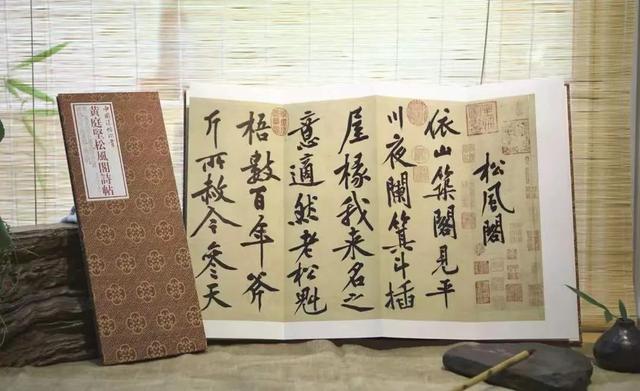 松風閣
依山築閣見平
川夜闌箕斗插
屋椽我来名之
意適然老松魁
梧數百年斧
斤所赦令參天
黃庭堅松風閣詩帖